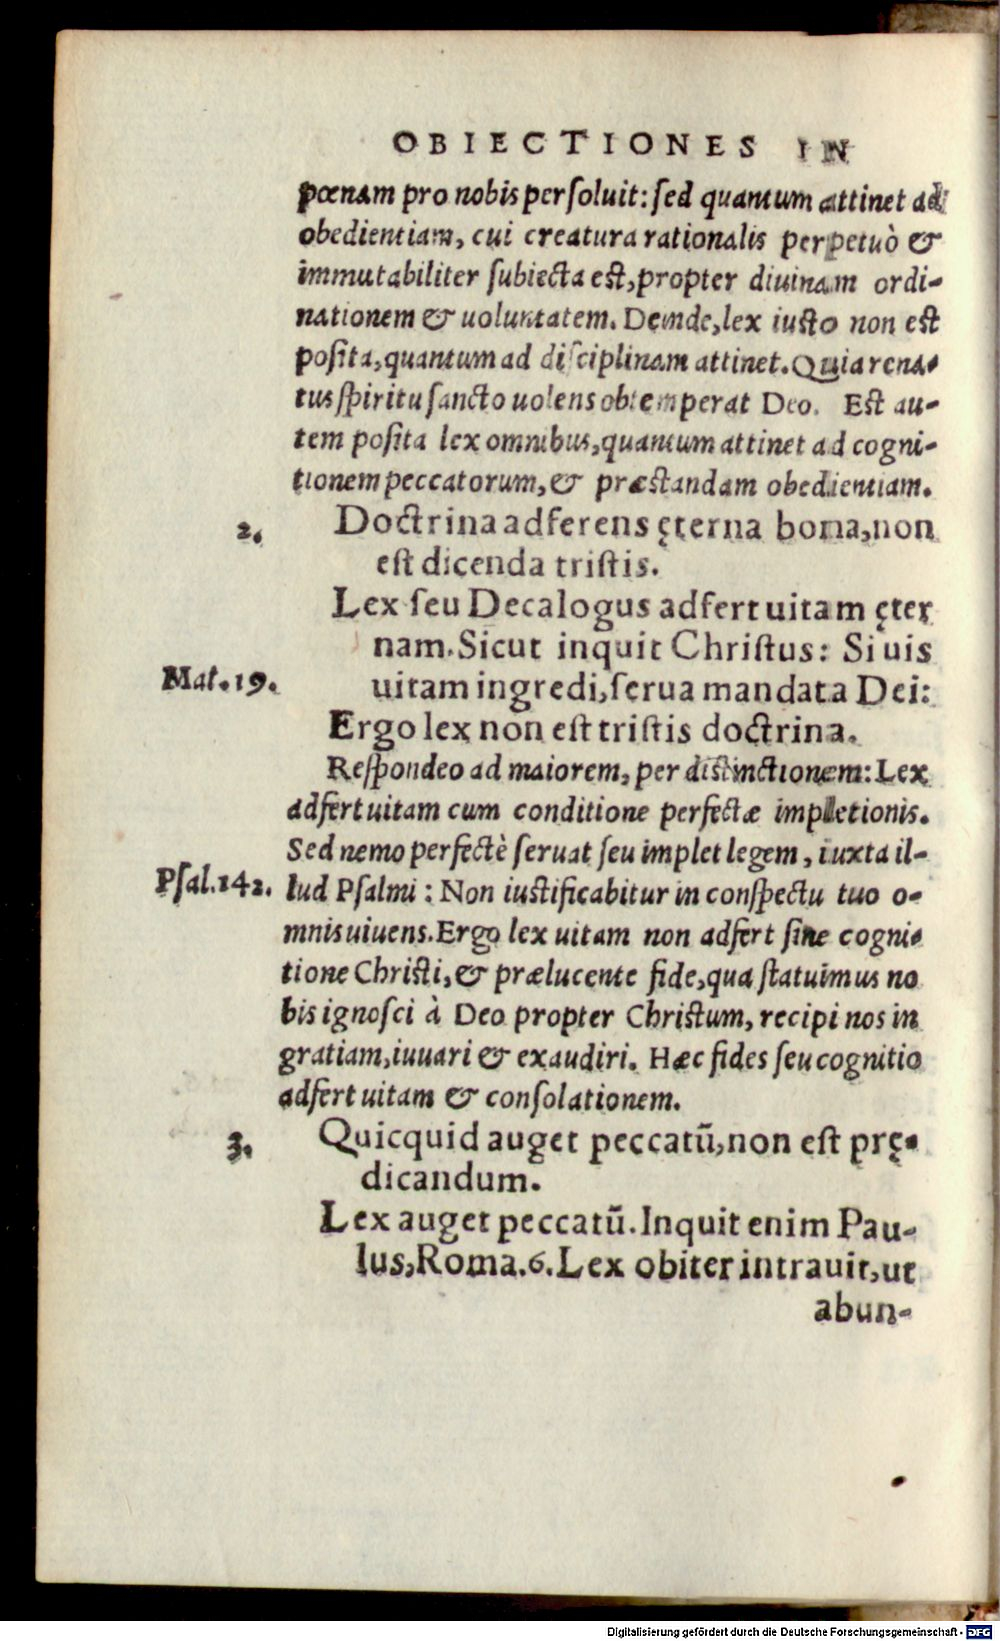 OBIECTIONES IN
pœnam pro nobis persoluit: sed quantum attinet ad
obedientiam, cui creatura rationalis perpetuò &
immutabiliter subiecta est, propter diuinam ordi-
nationem & uoluntatem. Deinde, lex iusto non est
posita, quantum ad disciplinam attinet. Quia rena-
tus spiritu sancto uolens obtemperat Deo. Est au-
tem posita lex omnibus, quantum attinet ad cogni-
tionem peccatorum, & præstandam obedientiam.
2. Doctrina adferens ęterna bona, non
est dicenda tristis.
Lex seu Decalogus adfert uitam ęter
nam. Sicut inquit Christus: Si uis
Mat. 19. uitam ingredi, serua mandata Dei:
Ergo lex non est tristis doctrina.
Respondeo ad maiorem, per distinctionem: Lex
adfert uitam cum conditione perfectæ impletionis.
Sed nemo perfectè seruat seu implet legem, iuxta il-
Psal. 142. lud Psalmi: Non iustificabitur in conspectu tuo o-
mnis uiuens. Ergo lex uitam non adfert sine cogni-
tione Christi, & prælucente fide, qua statuimus no
bis ignosci à Deo propter Christum, recipi nos in
gratiam, iuuari & exaudiri. Hæc fides seu cognitio
adfert uitam & consolationem.
3. Quicquid auget peccatū, non est prę-
dicandum.
Lex auget peccatū. Inquit enim Pau-
lus, Roma. 6. Lex obiter intrauit, ut
abun-
Digitalisierung gefördert durch die Deutsche Forschungsgemeinschaft - DFG